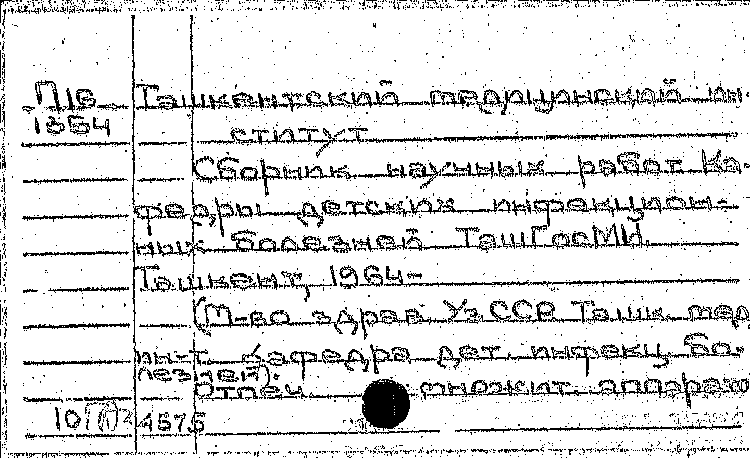 П16 Ташкентский медицинский ин-
1354 ститут
Сборник научных работ Ка-
федры детских инфекцион-
ных болезней ТашГосМИ.
Ташкент, 1964-
(М-во здрав. УзССР. Ташк. мед
ин-т. Кафедра дет. инфекц. бо-
лезней).
Отпеч. множит. аппарато